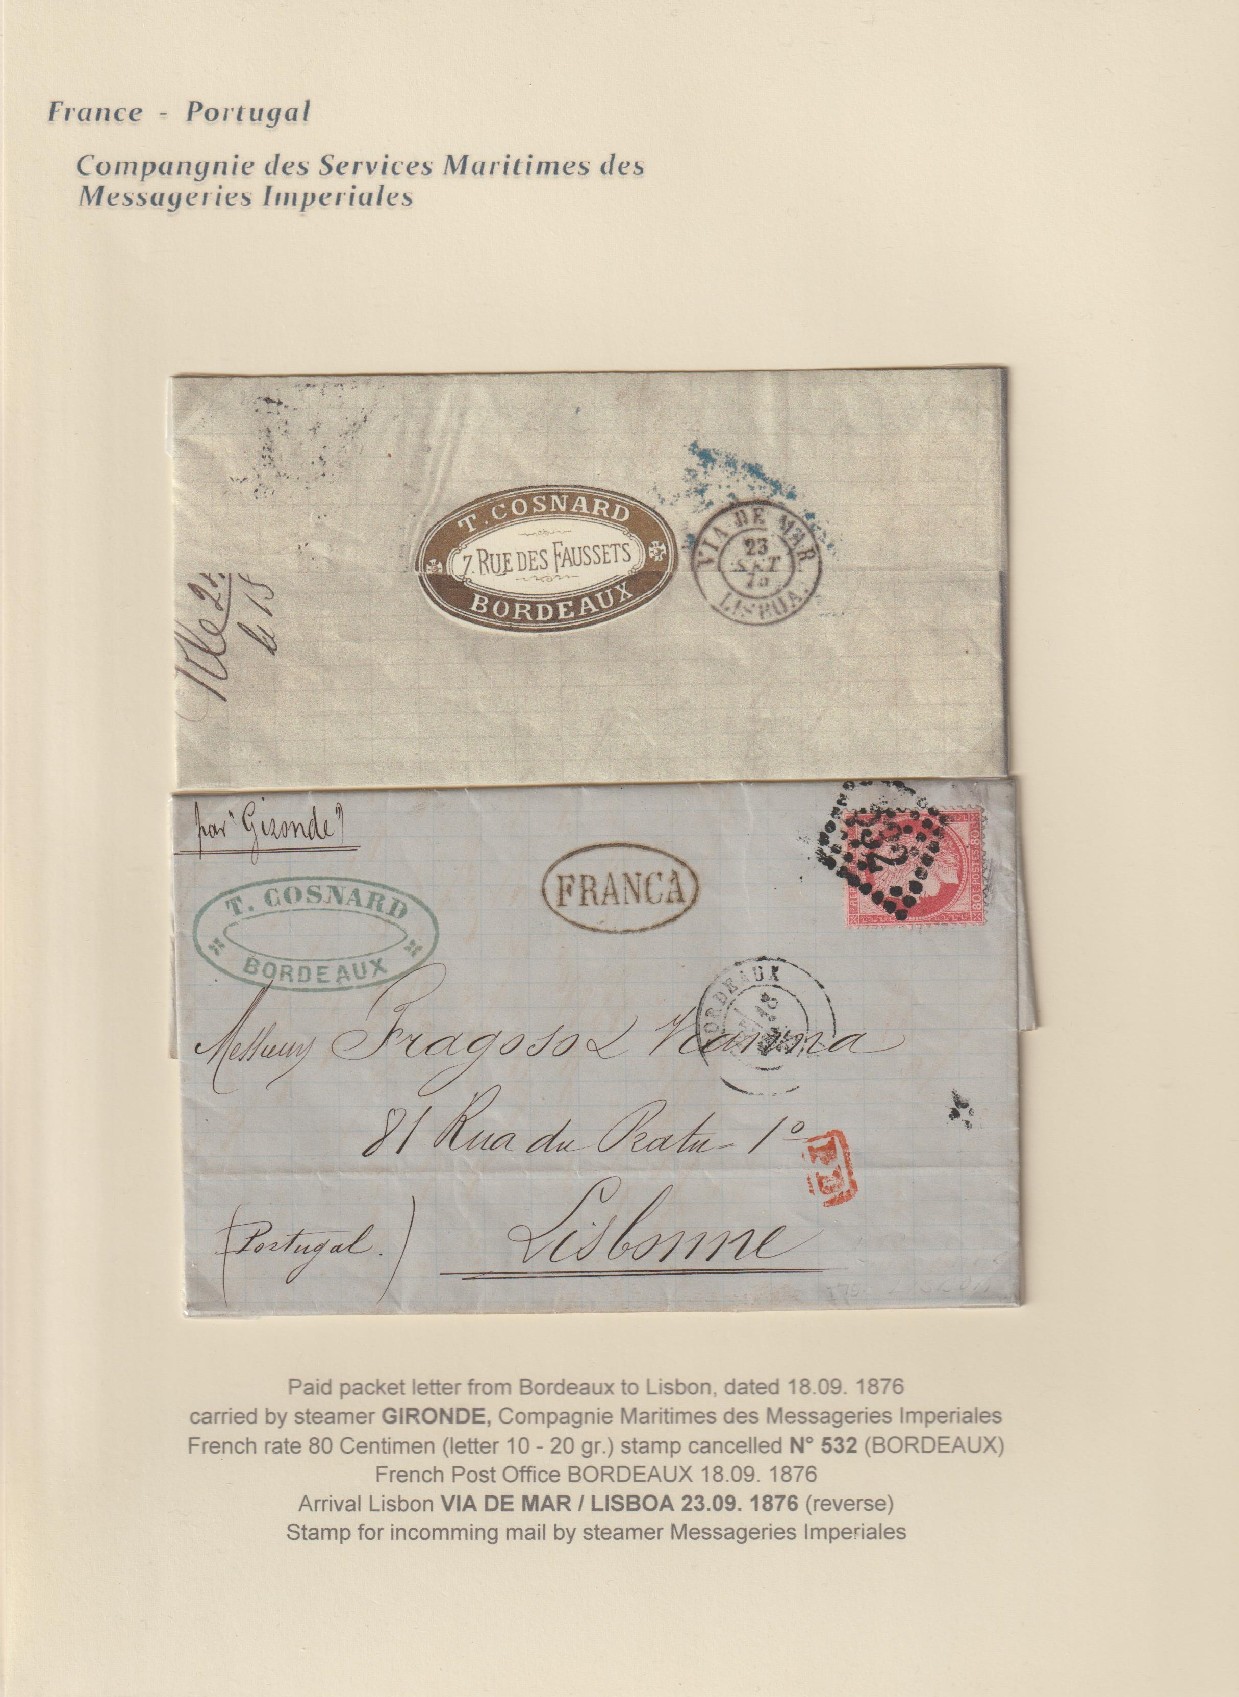 France - Portugal
Compangnie des Services Maritimes des
Messageries Imperiales
T. COSNARD
7. RUE DES FAUSSETS
BORDEAUX
VIA DE MAR
23
SET
LISBOA
le 15
par "Gironde"
FRANCA
532
80 POSTES 80
T. COSNARD
BORDEAUX
BORDEAUX
Messieurs Fragoso &
81 Rua du Prata 1º
P.D.
(Portugal.)
Lisbonne
Paid packet letter from Bordeaux to Lisbon, dated 18.09. 1876
carried by steamer GIRONDE, Compagnie Maritimes des Messageries Imperiales
French rate 80 Centimen (letter 10 - 20 gr.) stamp cancelled N° 532 (BORDEAUX)
French Post Office BORDEAUX 18.09. 1876
Arrival Lisbon VIA DE MAR / LISBOA 23.09. 1876 (reverse)
Stamp for incomming mail by steamer Messageries Imperiales